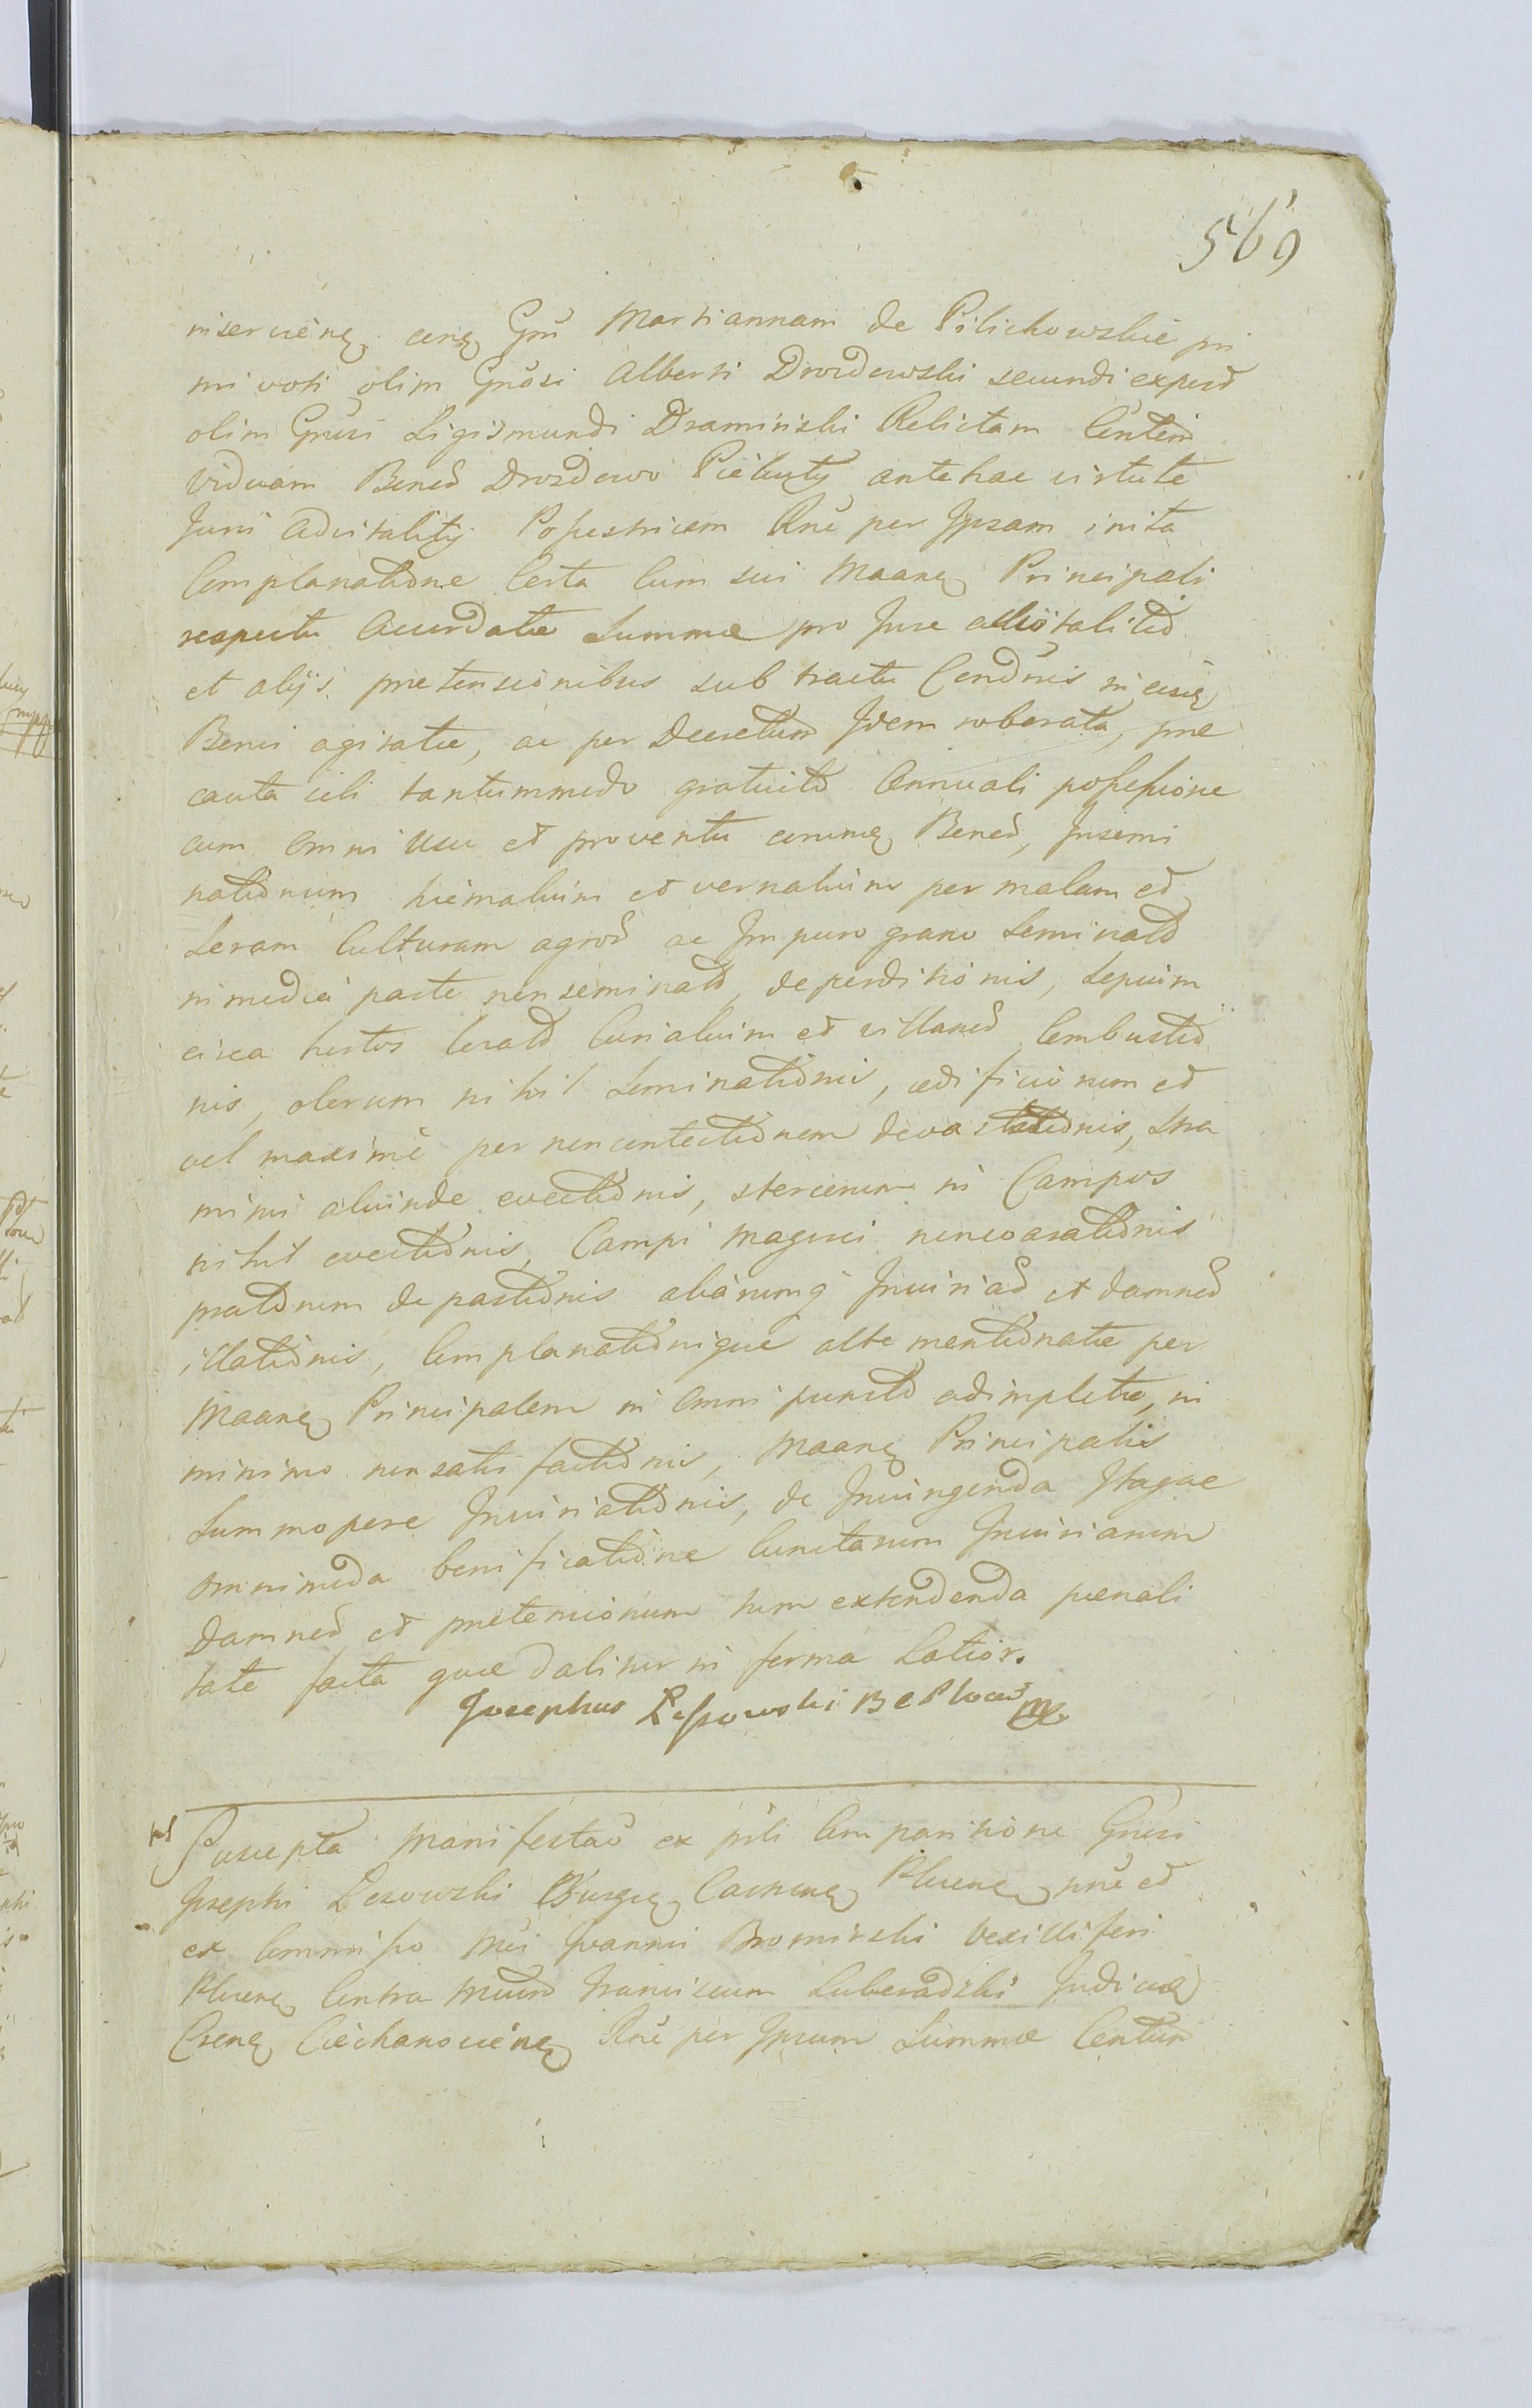 569
inservien. cen. Gm Martiannam de Pilichowskie pri
mi voti olim Gnosi Alberti Drozdewski secundi expost
olim Gnsi Sigismundi Draminski Relictam
Viduam Bonor Drozdewo antehac virtute
Juris Advitalitis Possestricem Rne per Ipsam inita
Complanatione Certa Cum sui Maane Principali
respectu Accordatae Summae pro Jure advitalitio
et alijs pretensionibus sub tractu Condnis in eisq
Bonis agitatae, ac per Decretum Idem roborata, prae
cauta sibi tantummodo gratuito Annuali possessione
cum omni usu et proventu eorumq Bonor, Insemi
nationum hiemalium et vernalium per malam et
Seram Culturam agror ac Impuro grano Seminato
in media parte non seminato, deperditionis, Sepium
circa hortos Curialium et villanor Combustio
nis, olerum nihil Seminationis, aedificiorum et
vel maxime per noncontectionem devastationis, Stra
minis aliunde evectionis, stercorum in Campos
nihil evectionis, Campi Magesci nonevarationis
pratorum depastionis aliarumq Iniuriar et damnor
illationis, Complanationique alte mentionatae per
Maane Principalem in omni puncto adimpletae, in
minimo non satisfactionis, Maane Principalis
Summopere Iniuriationis, de Iniungenda Itaque
omnimoda bonificatione Cunctarum Iniuriarum
Damnor et pretensionum tum extendenda poenali
tate facta quae dabitur in forma Latior.
Josephus Lessowski B C Plocen mp
Suscepta Manifestao ex psli Comparitione Gnosi
Josephi Lesowski Burgr Castren Plocen sne et
ex Commisso Mci Joannis Bromirski Vexilliferi
Plocen Contra Mcum Franciscum Luberadzki Judicem
Csren Ciechanovien Rne per Ipsum Summae Centum